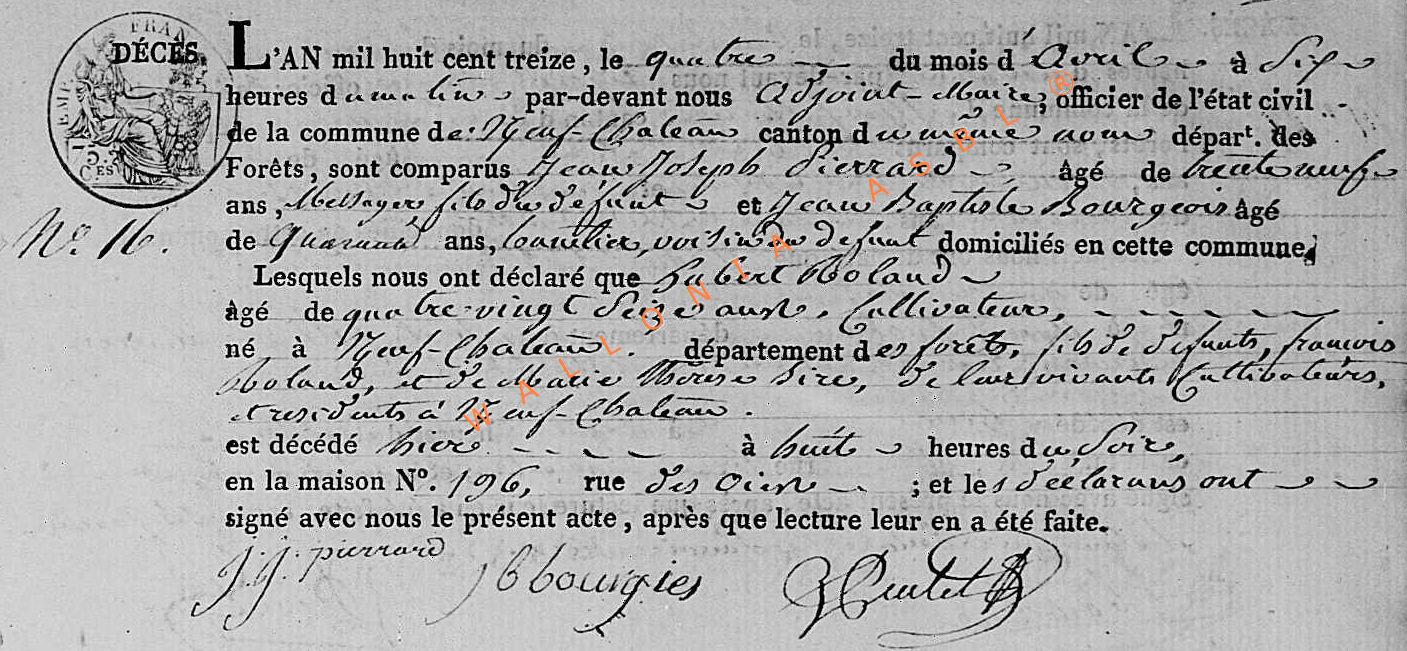 FRAN
EMP
CES
DÉCÈS.
L'AN mil huit cent treize, le quatre du mois d'Avril à Six
heures du matin par-devant nous Adjoint-Maire, officier de l'état civil
de la commune de Neuf-Chateau canton du même nom départ. des
Forêts, sont comparus Jean Joseph Pierrard âgé de trente neuf
ans, Messager, fils du défunt et Jean Baptiste Bourgeois âgé
No. 16.
de Quarante ans, voisin du defunt domiciliés en cette commune,
Lesquels nous ont déclaré que hubert Roland
âgé de quatre-vingt Seize ans. Cultivateur,
né à Neuf-Chateau. département des forêts, fils de defunts, francois
Roland, et de Marie Therese Sire, de leur vivants Cultivateurs,
et residents à Neuf-Chateau.
est décédé hier à huit heures du Soir,
en la maison No. 196, rue des ; et les déclarans ont
signé avec nous le présent acte, après que lecture leur en a été faite.
J. J. pierrard
JB bourgies
WALLONIA ASBL ®